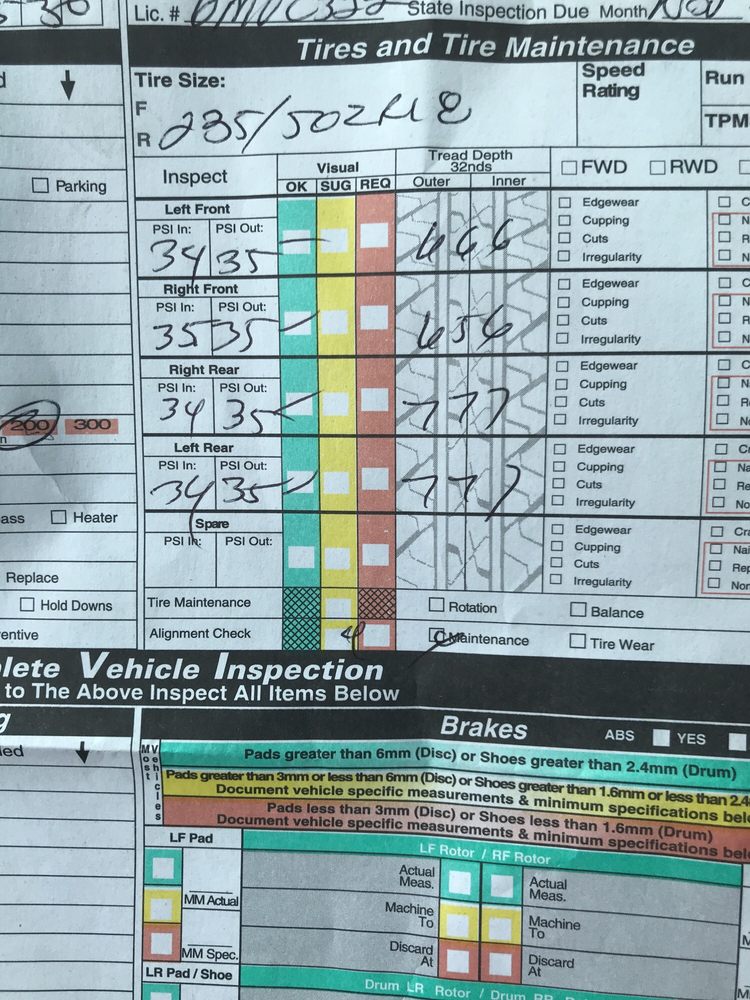 Lic. # State Inspection Due Month Nov
Tires and Tire Maintenance
Tire Size:
Speed Rating
Run
F
R 235/50ZR18
TPM
Parking
Inspect
Visual
OK SUG REQ
Tread Depth
32nds
Outer Inner
FWD RWD
Left Front
PSI In: PSI Out:
34 35
6 6 6
Edgewear
Cupping
Cuts
Irregularity
Right Front
PSI In: PSI Out:
35 35
6 5 6
Edgewear
Cupping
Cuts
Irregularity
Right Rear
PSI In: PSI Out:
34 35
7 7 7
Edgewear
Cupping
Cuts
Irregularity
200 300
Left Rear
PSI In: PSI Out:
34 35
7 7 7
Edgewear
Cupping
Cuts
Irregularity
ass Heater
Spare
PSI In: PSI Out:
Edgewear
Cupping
Cuts
Irregularity
Replace
Hold Downs
entive
Tire Maintenance
Rotation Balance
Alignment Check
Maintenance Tire Wear
plete Vehicle Inspection
to The Above Inspect All Items Below
Brakes
ABS YES
Most Vehicles
Pads greater than 6mm (Disc) or Shoes greater than 2.4mm (Drum)
Pads greater than 3mm or less than 6mm (Disc) or Shoes greater than 1.6mm or less than 2.4
Document vehicle specific measurements & minimum specifications bel
Pads less than 3mm (Disc) or Shoes less than 1.6mm (Drum)
Document vehicle specific measurements & minimum specifications bel
LF Pad
MM Actual
MM Spec.
LF Rotor / RF Rotor
Actual Meas.
Actual Meas.
Machine To
Machine To
Discard At
Discard At
LR Pad / Shoe
Drum LR Rotor / Drum RR